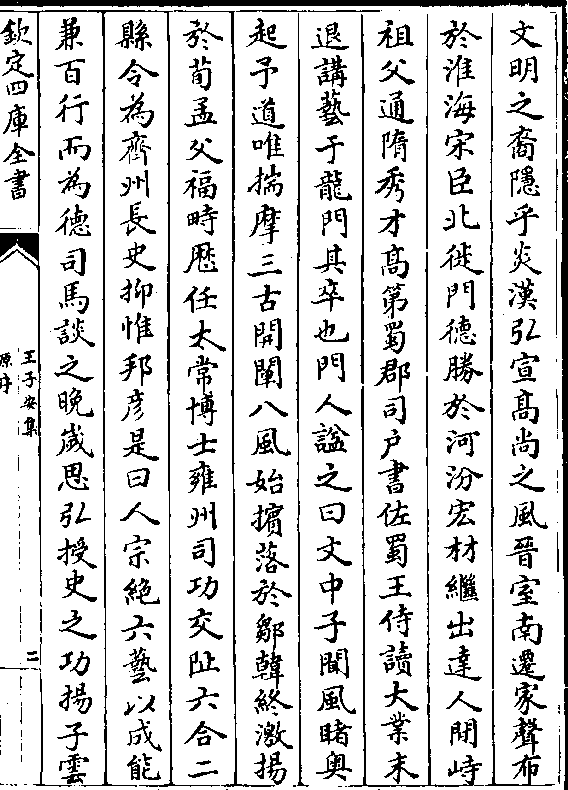 文明之裔隱乎炎漢弘宣髙尚之風晉室南遷家聲布
於淮海宋臣北徙門德勝於河汾宏材繼出達人間峙
祖父通隋秀才髙第蜀郡司户書佐蜀王侍讀大業末
退講藝于龍門其卒也門人諡之曰文中子聞風睹奥
起予道唯揣摩三古開闡八風始擯落於鄒韓終激揚
於荀孟父福畤厯任太常博士雍州司功交阯六合二
縣令為齊州長史抑惟邦彦是曰人宗絶六藝以成能
兼百行而為德司馬談之晩嵗思弘授史之功揚子雲
欽定四庫全書
王子安集
原序
二